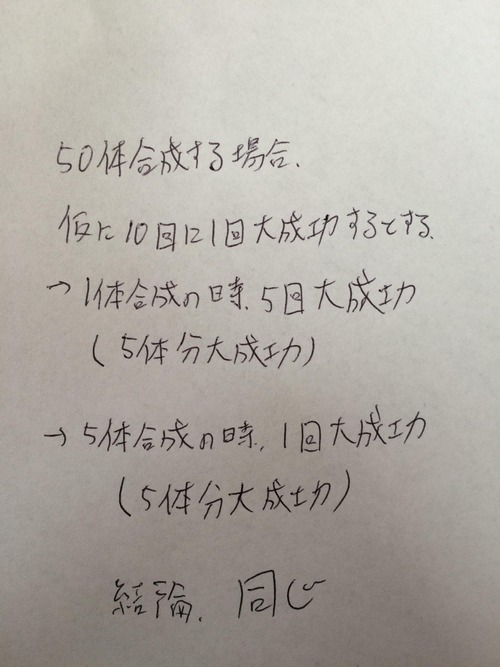 50体合成する場合、
仮に10回に1回大成功するとする、
→1体合成の時、5回大成功
(5体分大成功)
→5体合成の時、1回大成功
(5体分大成功)
結論、同じ